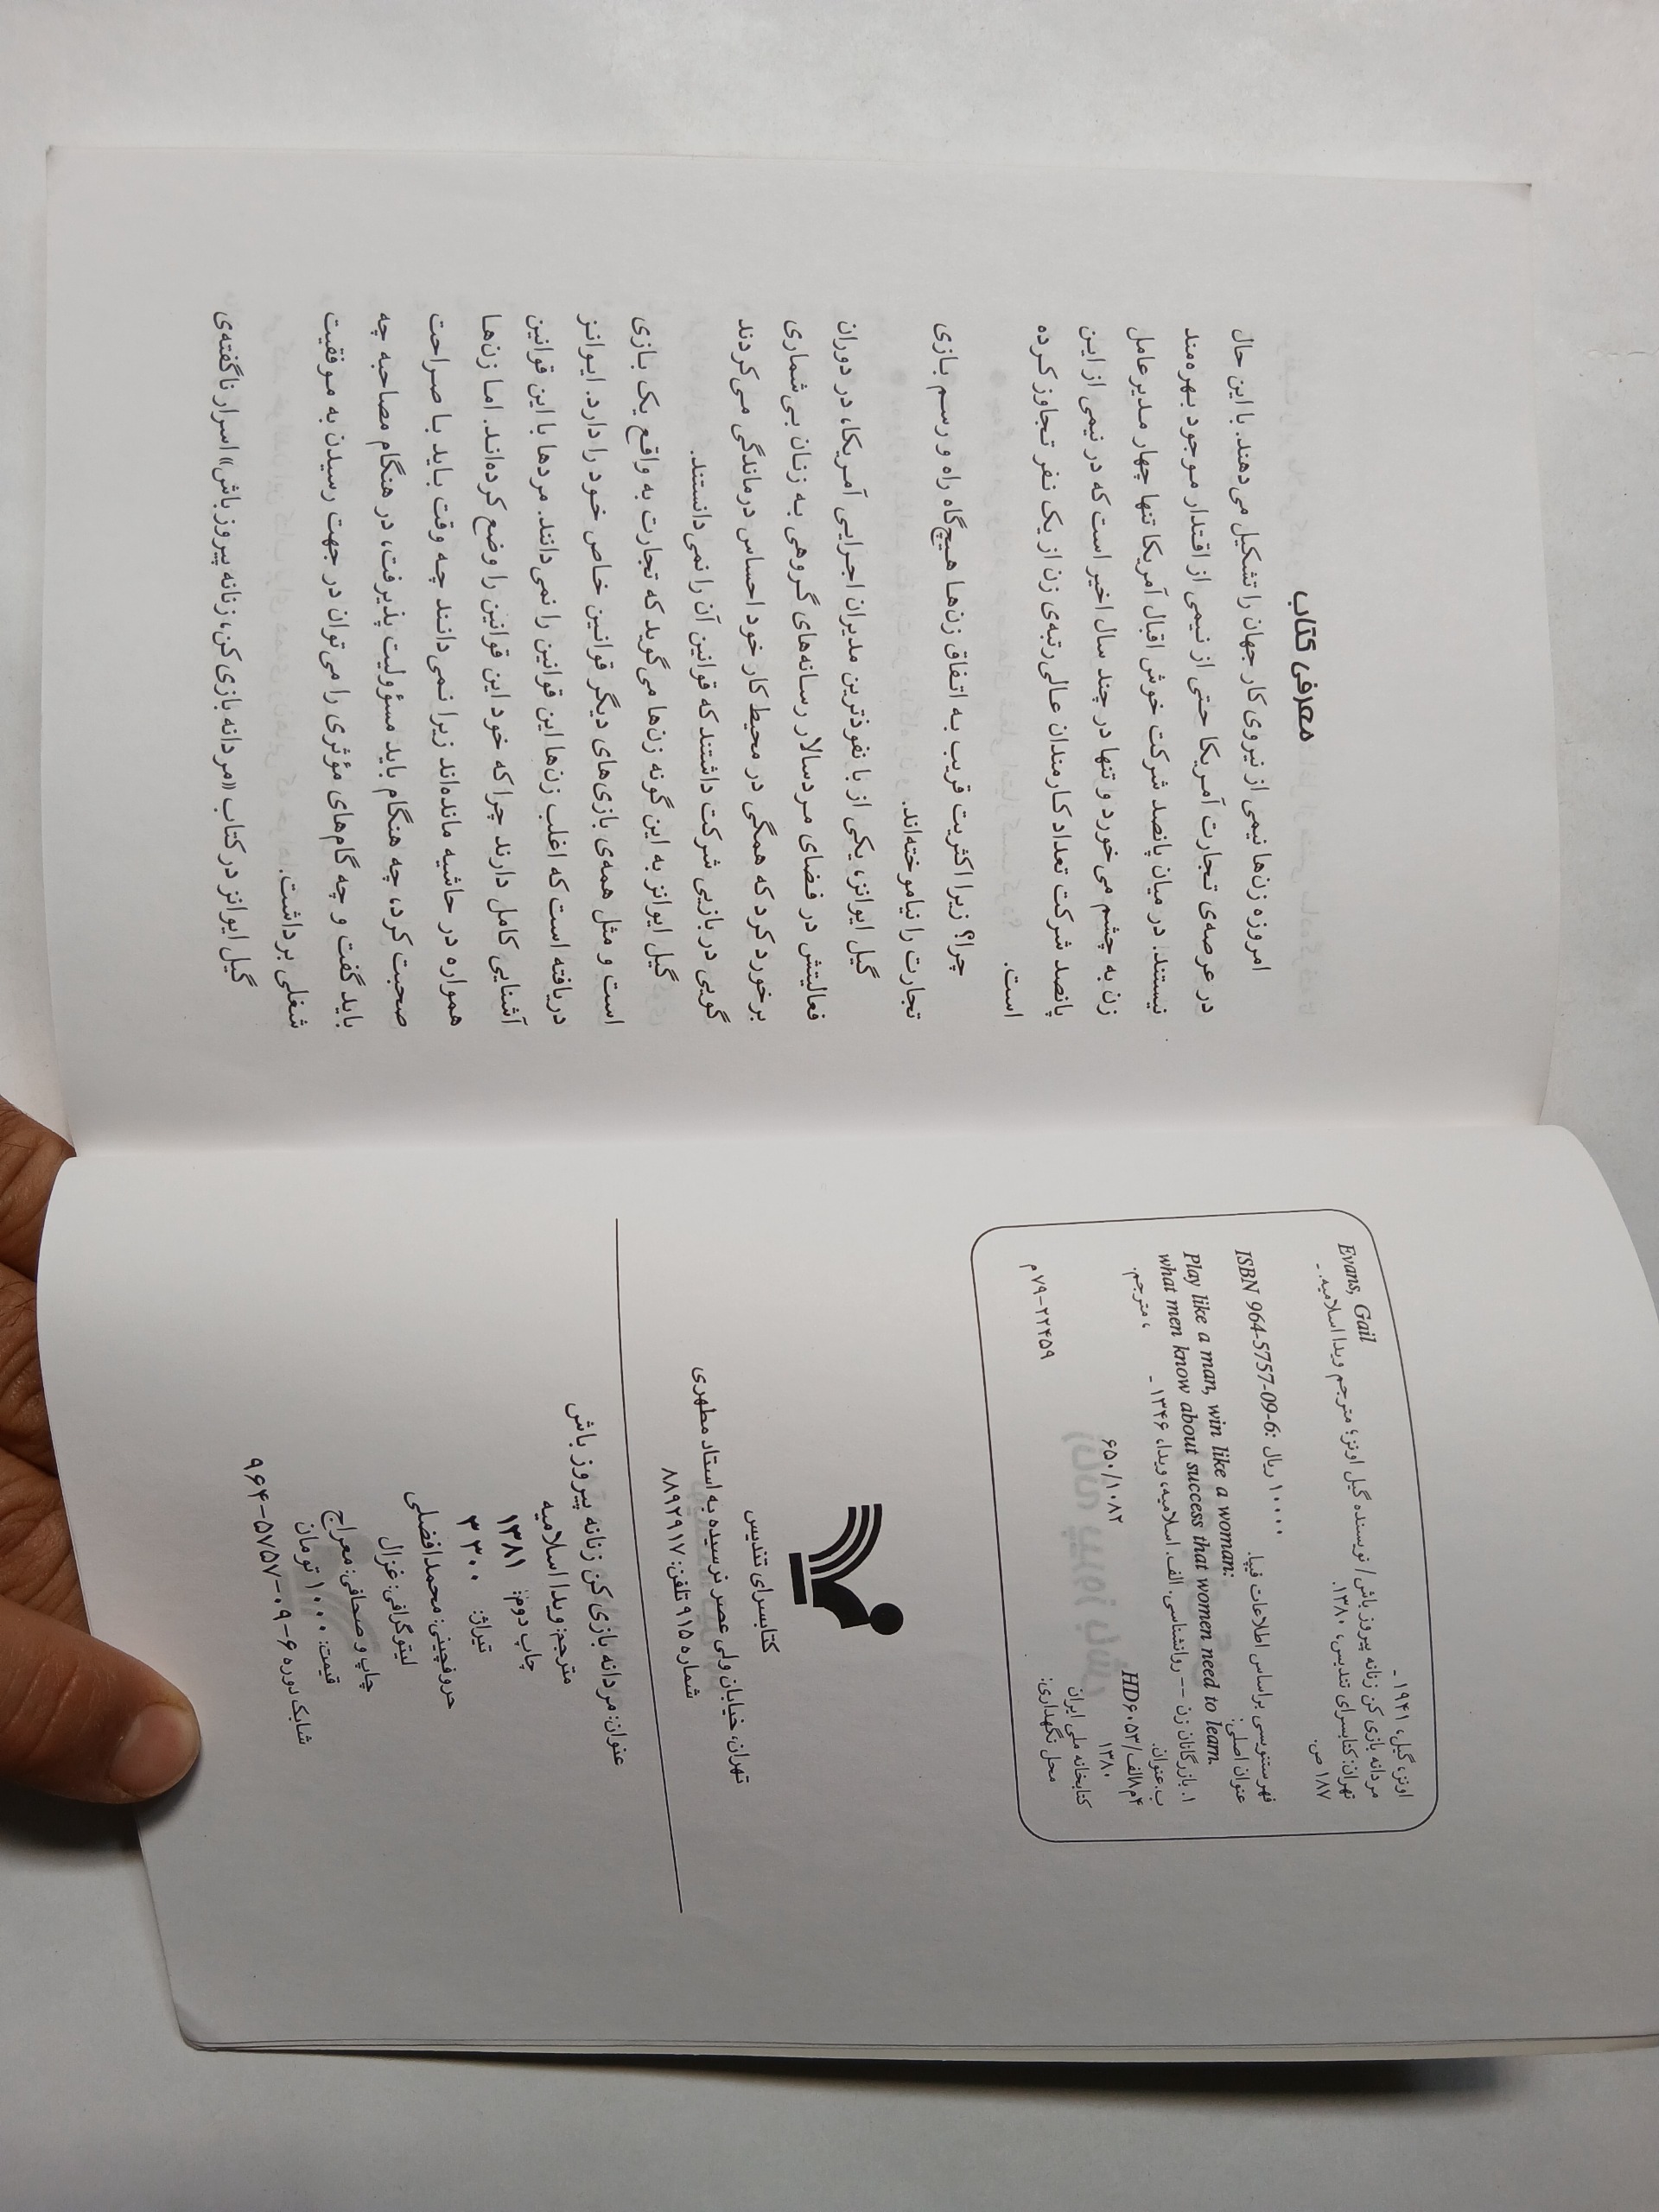 اونز، گیل، ۱۹۴۱ -
Evans, Gail
مردانه بازی کن زنانه پیروز باش / نویسنده گیل اونز؛ مترجم ویدا اسلامیه. -
تهران: کتابسرای تندیس، ۱۳۸۰.
۱۸۷ ص.
ISBN 964-5757-09-6: ۱۰۰۰۰ ریال
فهرستنویسی براساس اطلاعات فیپا.
عنوان اصلی:
Play like a man, win like a woman:
what men know about success that women need to learn.
۱. بازرگانان زن -- روانشناسی. الف. اسلامیه، ویدا، ۱۳۴۶ -
، مترجم.
ب. عنوان.
۴م۸الف/HD۶۰۵۳ ۶۵۰/۱۰۸۲
۱۳۸۰
کتابخانه ملی ایران ۷۹-۲۲۴۵۹م
محل نگهداری:
کتابسرای تندیس
تهران، خیابان ولی عصر نرسیده به استاد مطهری
شماره ۹۱۵ تلفن: ۸۸۹۲۹۱۷
عنوان: مردانه بازی کن زنانه پیروز باش
مترجم: ویدا اسلامیه
چاپ دوم: ۱۳۸۱
تیراژ: ۳۳۰۰
حروفچینی: محمد افضلی
لیتوگرافی: غزال
چاپ و صحافی: معراج
قیمت: ۱۰۰۰ تومان
شابک دوره ۶-۰۹-۵۷۵۷-۹۶۴
معرفی کتاب
امروزه زن‌ها نیمی از نیروی کار جهان را تشکیل می‌دهند. با این حال
در عرصه‌ی تجارت آمریکا حتی از نیمی از اقتدار موجود بهره‌مند
نیستند. در میان پانصد شرکت خوش اقبال آمریکا تنها چهار مدیرعامل
زن به چشم می‌خورد و تنها در چند سال اخیر است که در نیمی از این
پانصد شرکت تعداد کارمندان عالی‌رتبه‌ی زن از یک نفر تجاوز کرده
است.
چرا؟ زیرا اکثریت قریب به اتفاق زن‌ها هیچ‌گاه راه و رسم بازی
تجارت را نیاموخته‌اند.
گیل ایوانز، یکی از با نفوذترین مدیران اجرایی آمریکا، در دوران
فعالیتش در فضای مردسالار رسانه‌های گروهی به زنان بی‌شماری
برخورد کرد که همگی در محیط کار خود احساس درماندگی می‌کردند
گویی در بازیی شرکت داشتند که قوانین آن را نمی‌دانستند.
گیل ایوانز به این گونه زن‌ها می‌گوید که تجارت به واقع یک بازی
است و مثل همه‌ی بازی‌های دیگر قوانین خاص خود را دارد. ایوانز
دریافته است که اغلب زن‌ها این قوانین را نمی‌دانند. مردها با این قوانین
آشنایی کامل دارند چرا که خود این قوانین را وضع کرده‌اند. اما زن‌ها
همواره در حاشیه مانده‌اند زیرا نمی‌دانند چه وقت باید با صراحت
صحبت کرد، چه هنگام باید مسؤولیت پذیرفت، در هنگام مصاحبه چه
باید گفت و چه گام‌های مؤثری را می‌توان در جهت رسیدن به موفقیت
شغلی برداشت.
گیل ایوانز در کتاب «مردانه بازی کن، زنانه پیروز باش» اسرار ناگفته‌ی